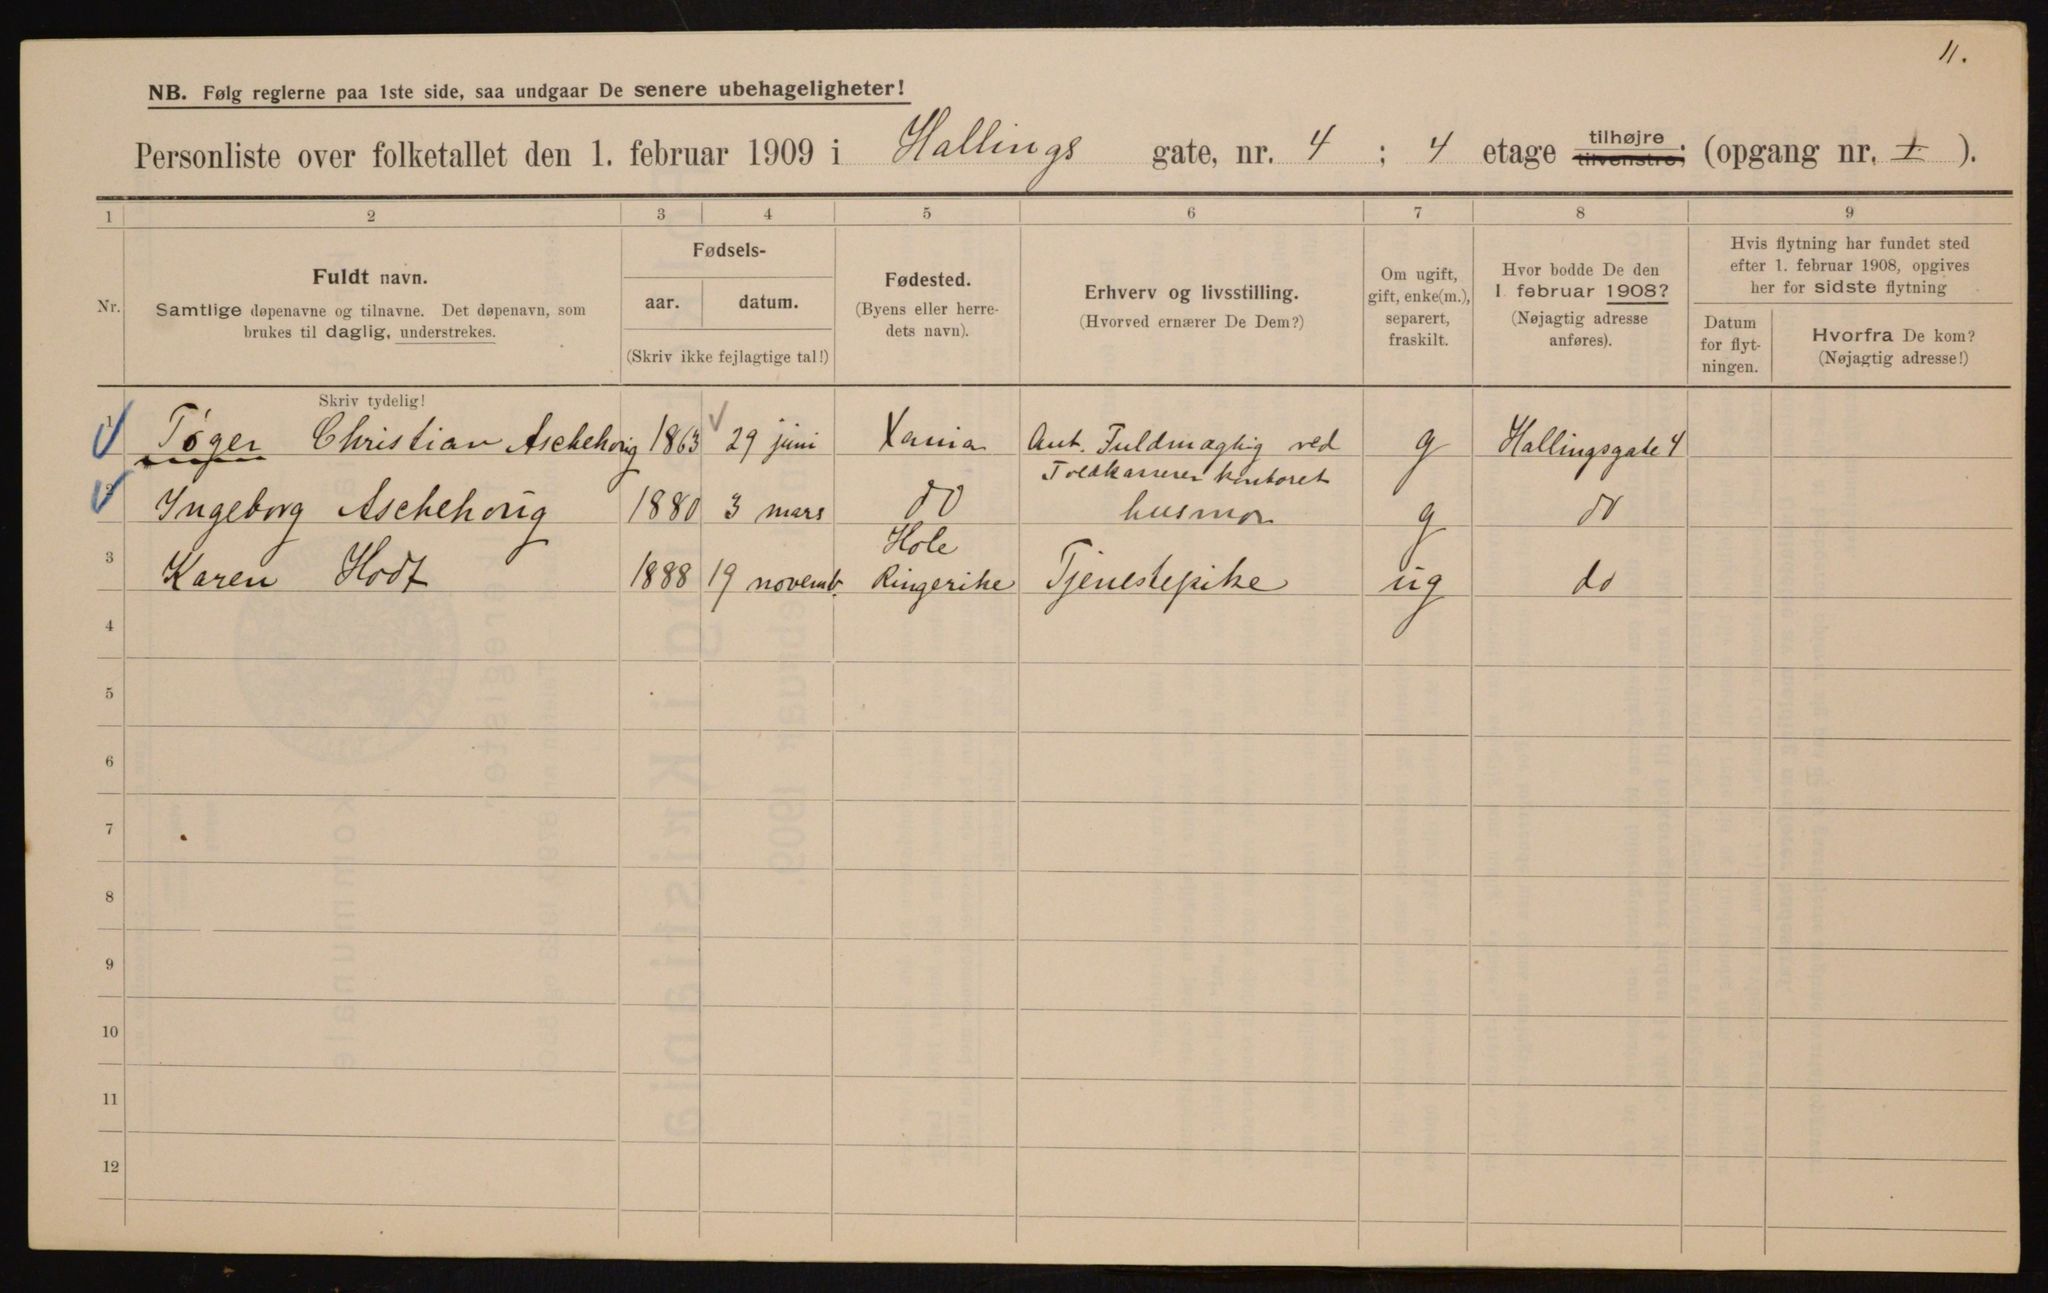 11.
NB. Følg reglerne paa 1ste side, saa undgaar De senere ubehageligheter!
Personliste over folketallet den 1. februar 1909 i Hallings gate, nr. 4 ; 4 etage tilhøjre tilvenstre, (opgang nr. 1 ).
1 2 3 4 5 6 7 8 9
Nr.
Fuldt navn.
Samtlige døpenavne og tilnavne. Det døpenavn, som
brukes til daglig, understrekes.
Fødsels-
aar. datum.
(Skriv ikke fejlagtige tal!)
Fødested.
(Byens eller herre-
dets navn).
Erhverv og livsstilling.
(Hvorved ernærer De Dem?)
Om ugift,
gift, enke(m.),
separert,
fraskilt.
Hvor bodde De den
1. februar 1908?
(Nøjagtig adresse
anføres).
Hvis flytning har fundet sted
efter 1. februar 1908, opgives
her for sidste flytning
Datum
for flyt-
ningen.
Hvorfra De kom?
(Nøjagtig adresse!)
Skriv tydelig!
1 Tøger Christian Aschehoug 1863 29 juni Xania Aut. Fuldmægtig ved g Hallingsgate 4
Toldkasserer kontoret
2 Ingeborg Aschehoug 1880 3 mars do husmor g do
3 Karen Hodt 1888 19 novemb. Hole
Ringerike Tjenestepike ug do
4
5
6
7
8
9
10
11
12